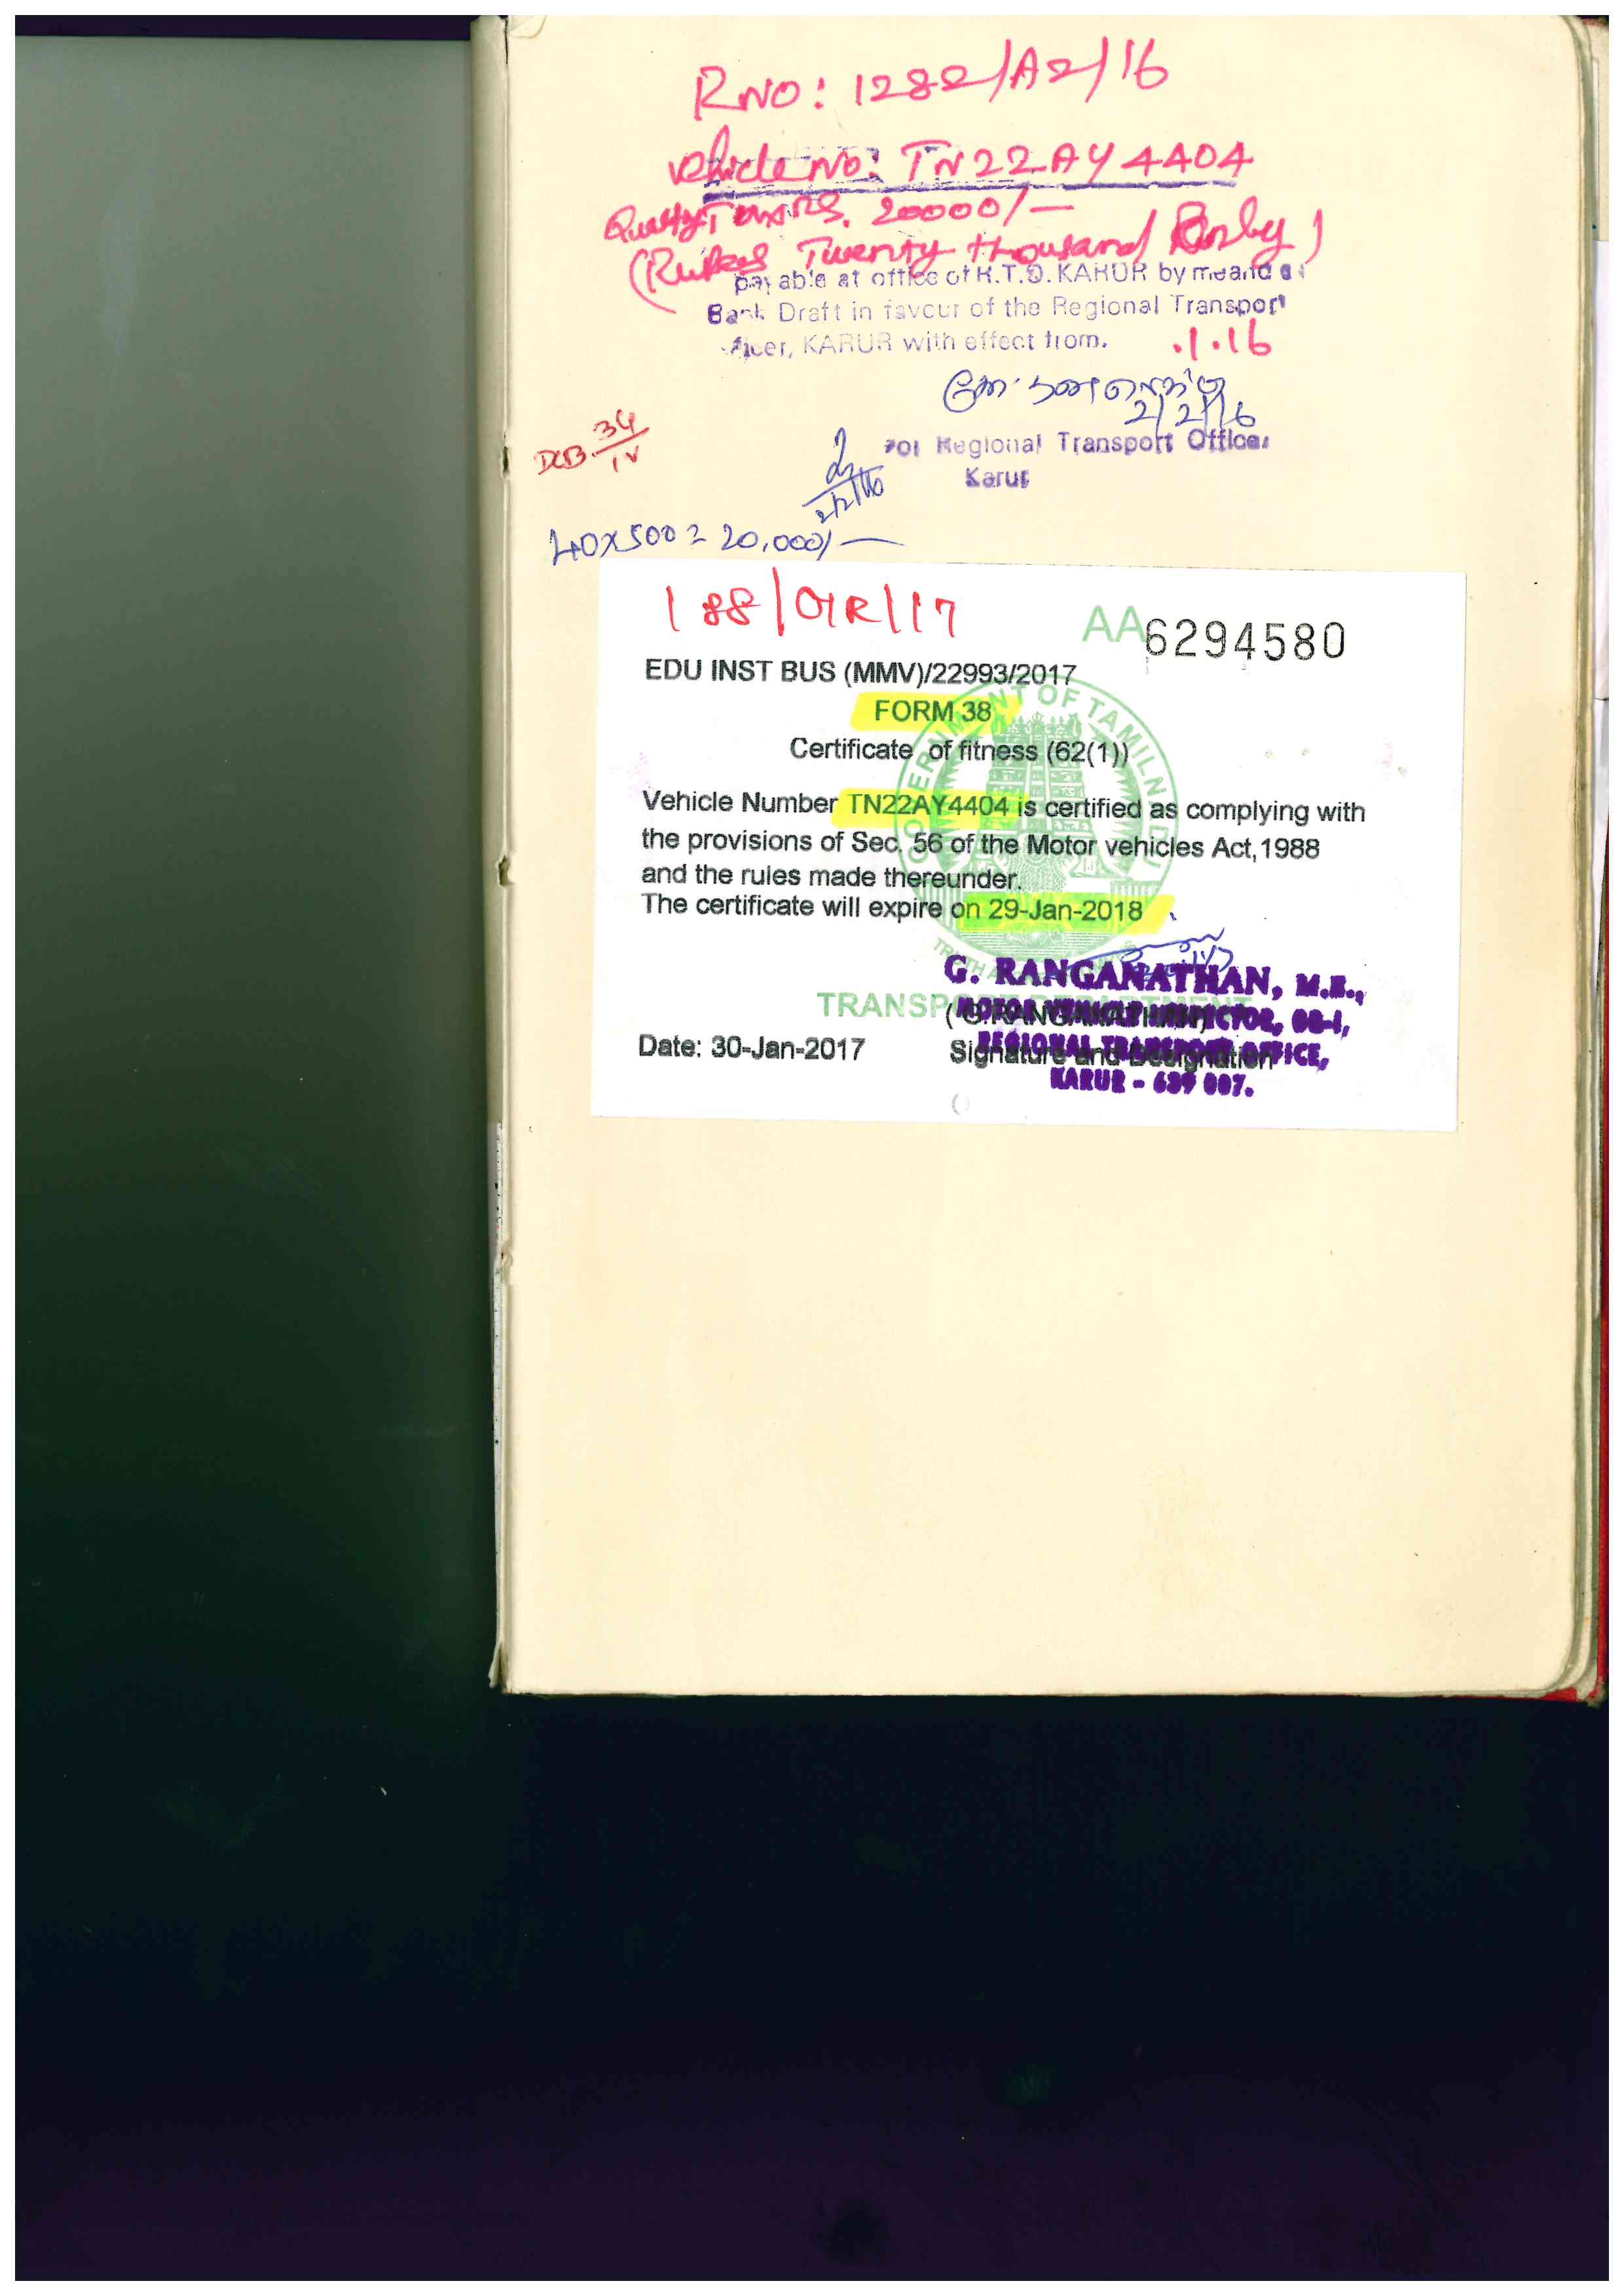 RNO: 1282/A2/16
Vehicle No: TN22AY4404
Tax RS. 20000/-
(Rupees Twenty thousand Only)
payable at office of R.T.O. KARUR by means of
Bank Draft in favour of the Regional Transport
ficer, KARUR with effect from. .1.16
2/2/16
For Regional Transport Officer
Karur
DCB 34/IV
2/2/16
40x500 = 20,000/-
188/ /17
AA 6294580
EDU INST BUS (MMV)/22993/2017
FORM 38
Certificate of fitness (62(1))
Vehicle Number TN22AY4404 is certified as complying with
the provisions of Sec. 56 of the Motor vehicles Act,1988
and the rules made thereunder.
The certificate will expire on 29-Jan-2018
GOVERNMENT OF TAMILNADU
TRANSPORT DEPARTMENT
G. RANGANATHAN, M.E.,
MOTOR VEHICLE INSPECTOR,
(G.RANGANATHAN)
REGIONAL TRANSPORT OFFICE,
Date: 30-Jan-2017 Signature and Designation
KARUR - 639 007.